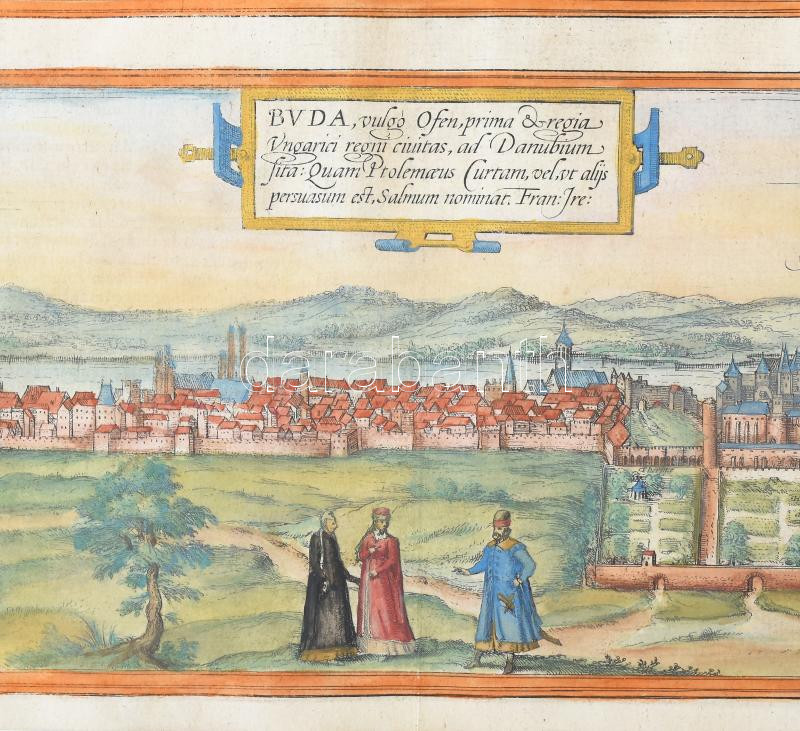 BVDA, vulgò Ofen, prima & regia
Vngarici regni ciuitas, ad Danubium
sita: Quam Ptolemæus Curtam, vel, vt alijs
persuasum est, Salmum nominat. Fran: Jre:
darabanth